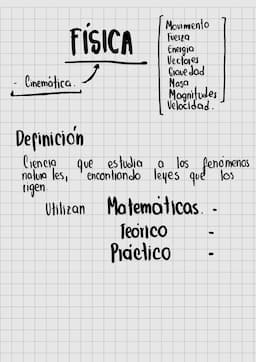 FÍSICA
- Cinemática.
Movimento
Fuerza
Energia
Vectores
Gravedad
Masa
Magnitudes
Velocidad.
Definición
Ciencia que estudia a los fenómenos
naturales, encontrando leyes que los
rigen.
Utilizan Matemáticas. -
Teórico -
Práctico -